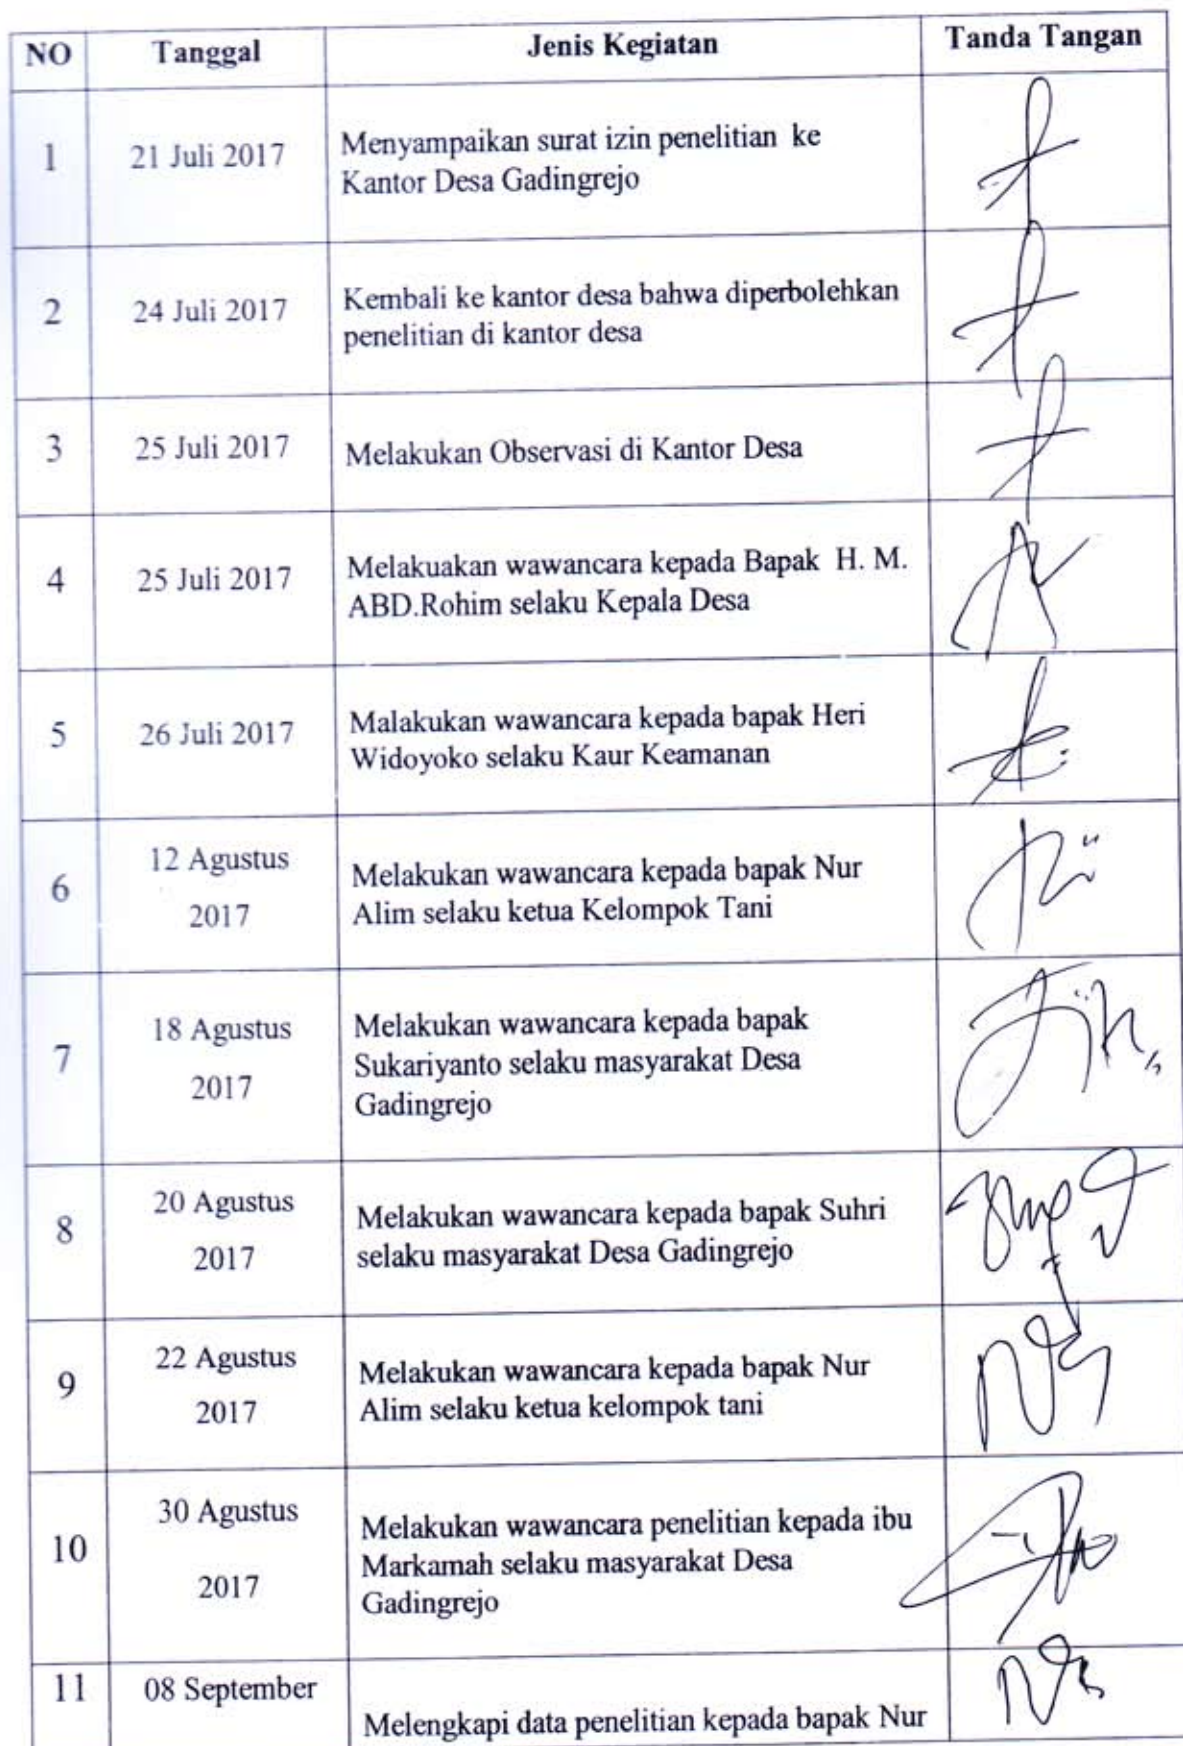 NO Tanggal Jenis Kegiatan Tanda Tangan
1 21 Juli 2017 Menyampaikan surat izin penelitian ke
Kantor Desa Gadingrejo
2 24 Juli 2017 Kembali ke kantor desa bahwa diperbolehkan
penelitian di kantor desa
3 25 Juli 2017 Melakukan Observasi di Kantor Desa
4 25 Juli 2017 Melakuakan wawancara kepada Bapak H. M.
ABD.Rohim selaku Kepala Desa
5 26 Juli 2017 Malakukan wawancara kepada bapak Heri
Widoyoko selaku Kaur Keamanan
6 12 Agustus
2017
Melakukan wawancara kepada bapak Nur
Alim selaku ketua Kelompok Tani
7 18 Agustus
2017
Melakukan wawancara kepada bapak
Sukariyanto selaku masyarakat Desa
Gadingrejo
8 20 Agustus
2017
Melakukan wawancara kepada bapak Suhri
selaku masyarakat Desa Gadingrejo
9 22 Agustus
2017
Melakukan wawancara kepada bapak Nur
Alim selaku ketua kelompok tani
10 30 Agustus
2017
Melakukan wawancara penelitian kepada ibu
Markamah selaku masyarakat Desa
Gadingrejo
11 08 September
Melengkapi data penelitian kepada bapak Nur